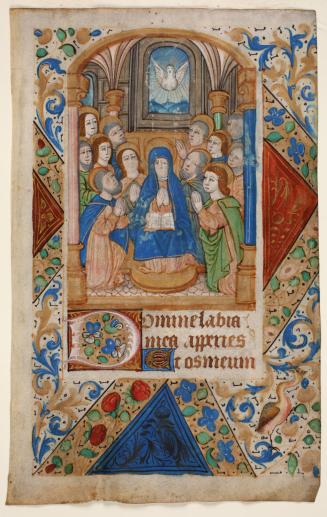 Domine labia
mea apperies
Et os meum